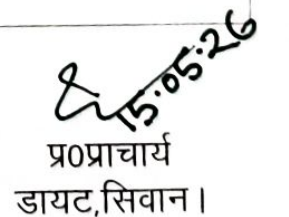 15.05.26
प्र0प्राचार्य
डायट,सिवान।